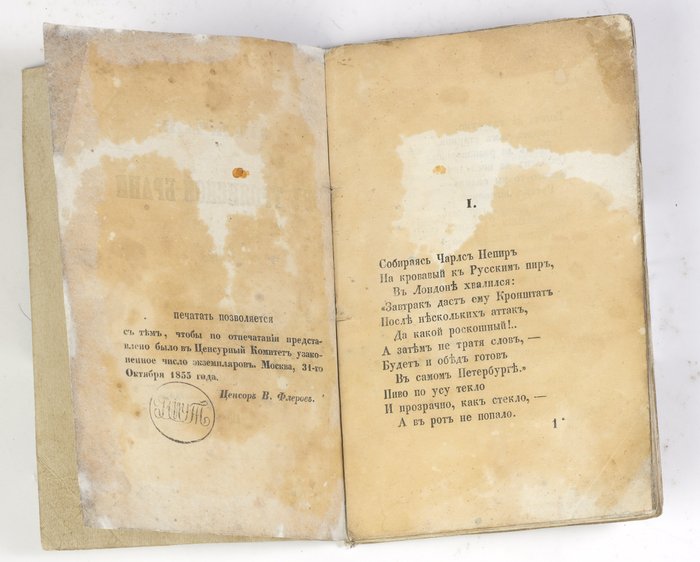 печатать позволяется
съ тѣмъ, чтобы по отпечатаніи представ-
лено было въ Ценсурный Комитетъ узако-
ненное число экземпляровъ. Москва, 31-го
Октября 1855 года.
Ценсоръ В. Флеровъ.
I.
Собираясь Чарлсъ Непиръ
На кровавый къ Русскимъ пиръ,
Въ Лондонѣ хвалился:
«Завтракъ дастъ ему Кронштатъ
Послѣ нѣсколькихъ аттакъ,
Да какой роскошный!..
А затѣмъ не тратя словъ, —
Будетъ и обѣдъ готовъ
Въ самомъ Петербургѣ.»
Пиво по усу текло
И прозрачно, какъ стекло, —
А въ ротъ не попало.
1*